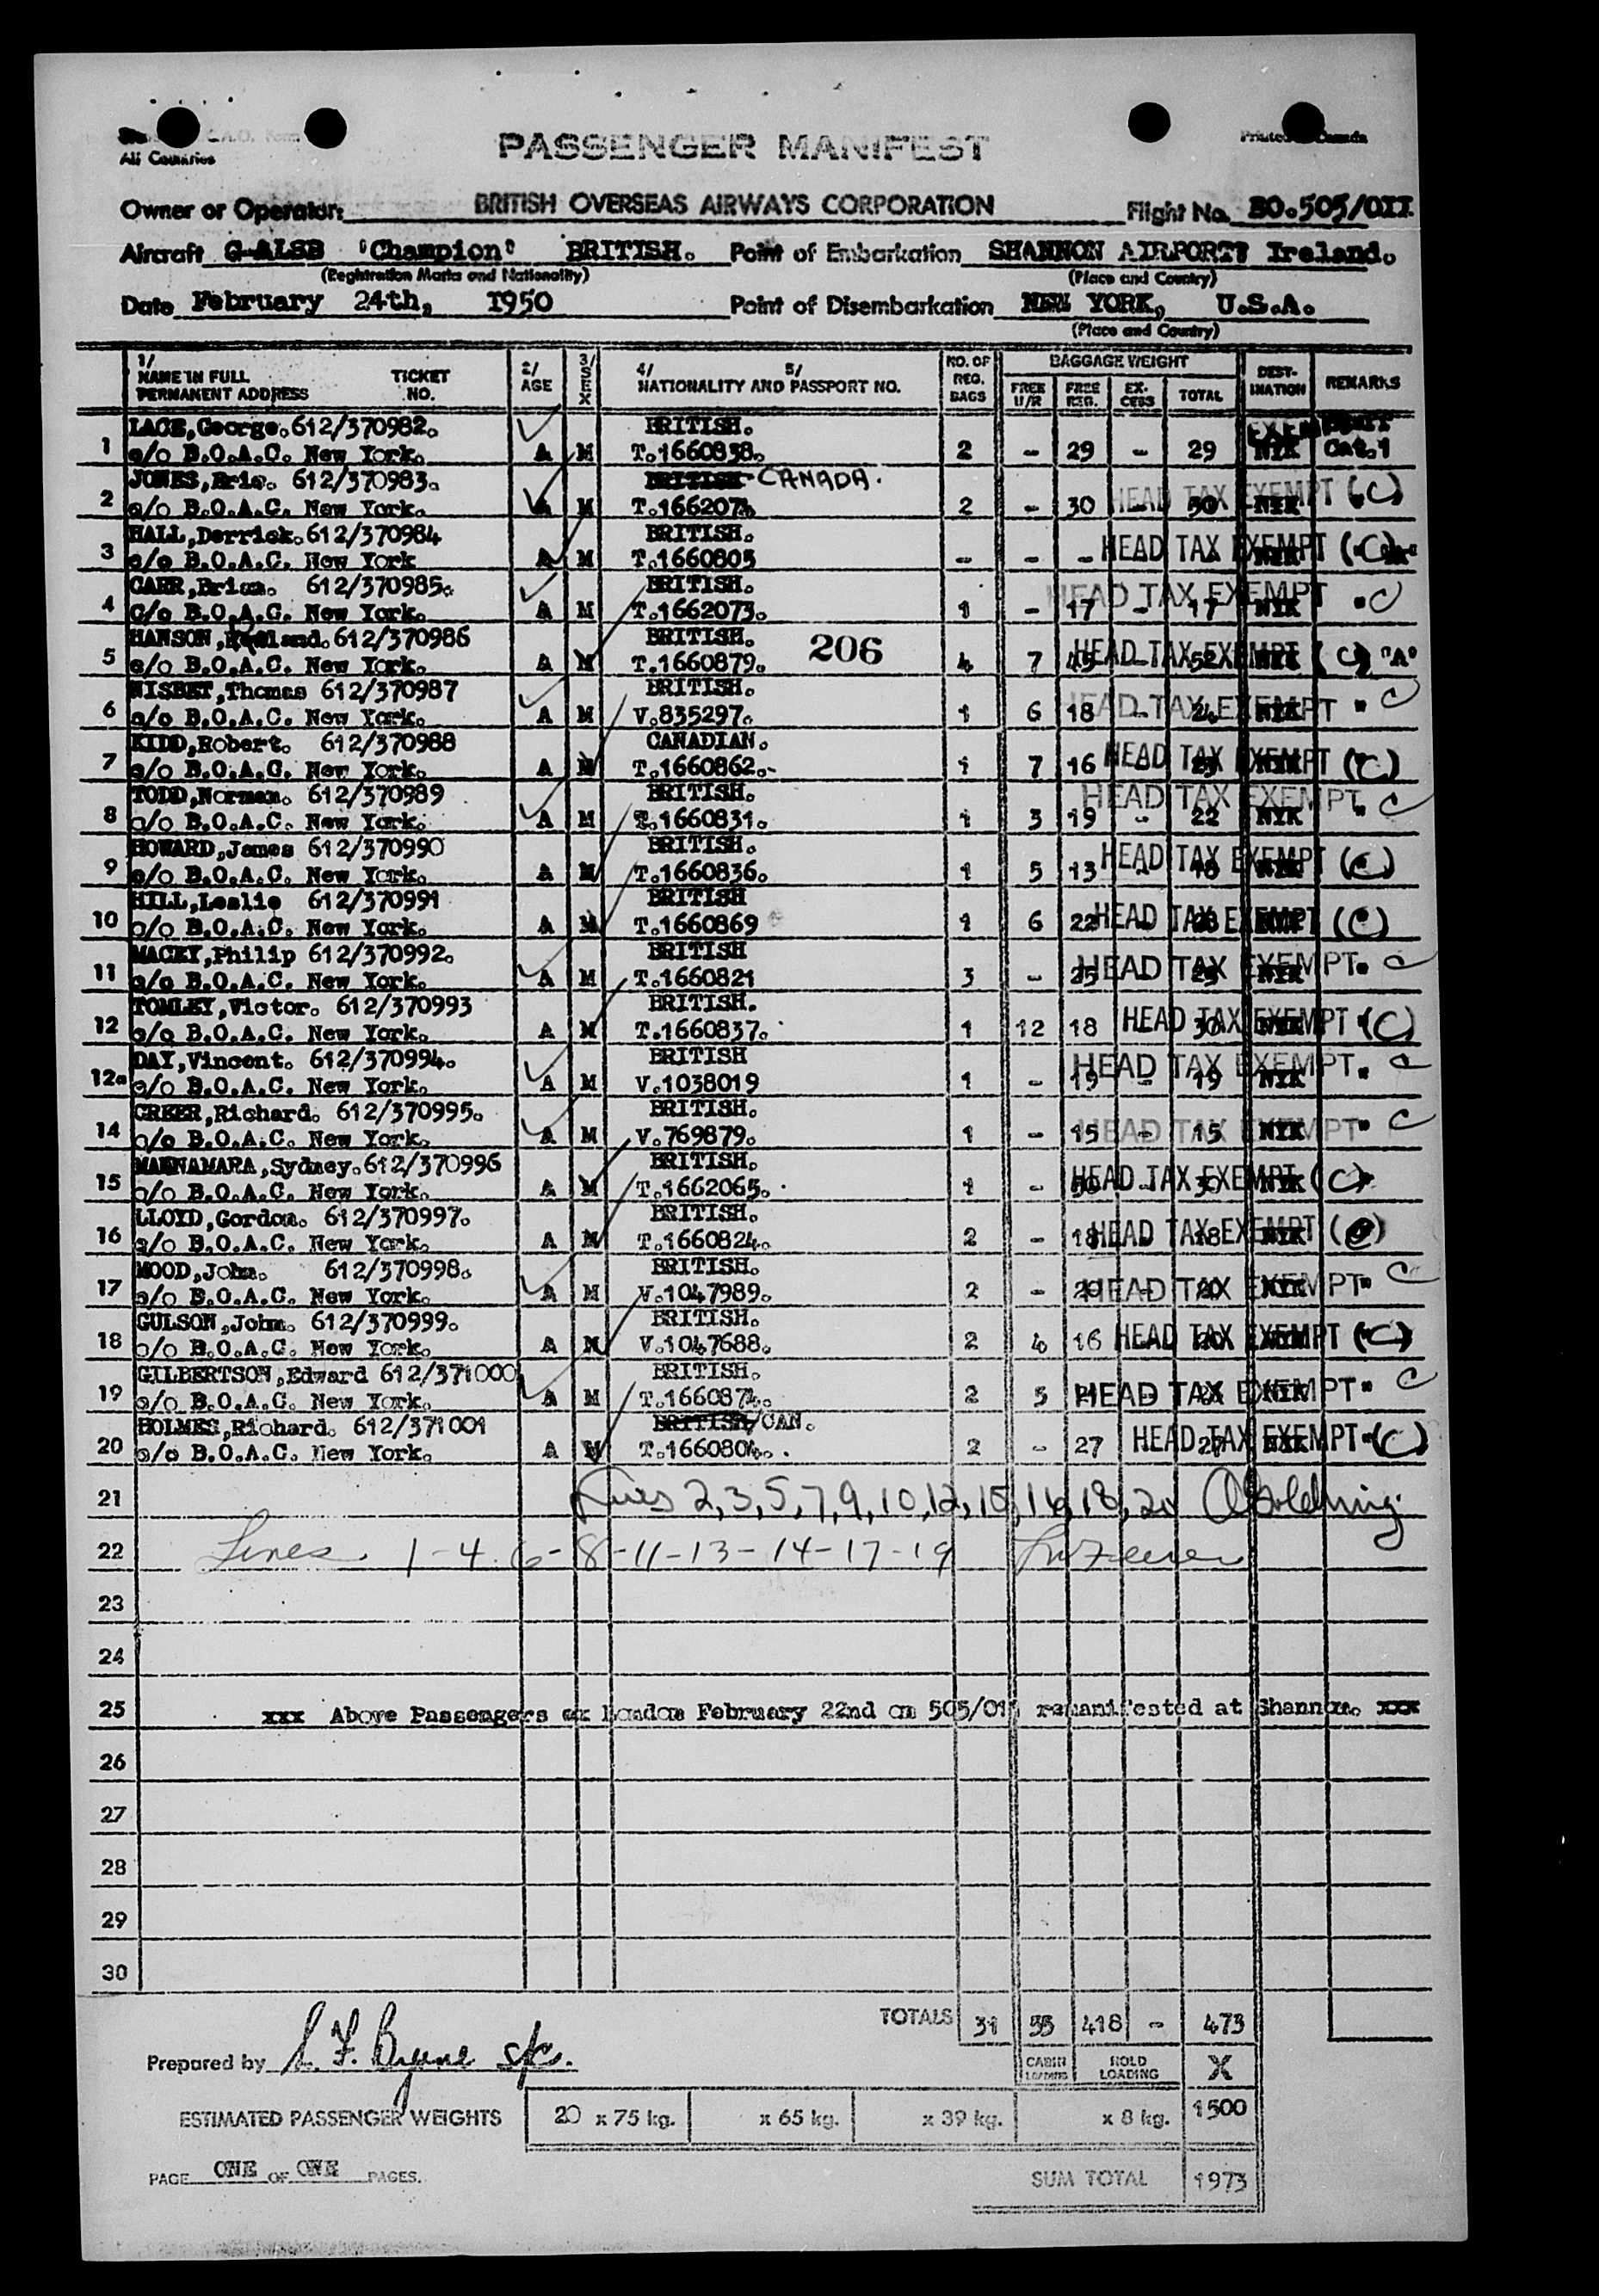 All Countries
PASSENGER MANIFEST
Printed Canada
Owner or Operator: BRITISH OVERSEAS AIRWAYS CORPORATION Flight No. BO.505/011
Aircraft G-ALSB 'Champion' BRITISH. Point of Embarkation SHANNON AIRPORT, Ireland.
(Registration Marks and Nationality) (Place and Country)
Date February 24th, 1950 Point of Disembarkation NEW YORK, U.S.A.
(Place and Country)
1/ NAME IN FULL PERMANENT ADDRESS TICKET NO. 2/ AGE 3/ SEX 4/ 5/ NATIONALITY AND PASSPORT NO. NO. OF REG. BAGS BAGGAGE WEIGHT FREE U/R FREE REG. EX-CESS TOTAL DEST-INATION REMARKS
LACE,George.612/370982. BRITISH.
1 c/o B.O.A.C. New York. A M T.1660838. 2 - 29 - 29 NYK Cat.1
JONES,Eric. 612/370983. BRITISH CANADA.
2 c/o B.O.A.C. New York. A M T.166207 2 - 30 - 30 NYK HEAD TAX EXEMPT (C)
HALL,Derrick.612/370984 BRITISH.
3 c/o B.O.A.C. New York A M T.1660805 - - - HEAD TAX EXEMPT (C)
CARR,Brian. 612/370985. BRITISH.
4 C/o B.O.A.C. New York. A M T.1662073. 1 - 17 - 17 NYK HEAD TAX EXEMPT " C
HANSON, 612/370986 BRITISH. 206
5 c/o B.O.A.C. New York. A M T.1660879. 4 7 45 - 52 NYK HEAD TAX EXEMPT (C) "A"
NISBET,Thomas 612/370987 BRITISH.
6 c/o B.O.A.C. New York. A M V.835297. 1 6 18 - 24 NYK HEAD TAX EXEMPT " C
KIDD,Robert. 612/370988 CANADIAN.
7 c/o B.O.A.C. New York. A M T.1660862.- 1 7 16 HEAD TAX EXEMPT (C)
TODD,Norman. 612/370989 BRITISH.
8 c/o B.O.A.C. New York. A M T.1660831. 1 3 19 - 22 NYK HEAD TAX EXEMPT " C
HOWARD,James 612/370990 BRITISH.
9 c/o B.O.A.C. New York. A M T.1660836. 1 5 13 - 18 NYK HEAD TAX EXEMPT (C)
HILL,Leslie 612/370991 BRITISH
10 c/o B.O.A.C. New York. A M T.1660869 1 6 22 - 28 NYK HEAD TAX EXEMPT (C)
MACEY,Philip 612/370992. BRITISH
11 c/o B.O.A.C. New York. A M T.1660821 3 - 25 - 25 NYK HEAD TAX EXEMPT " C
TOMLEY,Victor. 612/370993 BRITISH.
12 c/o B.O.A.C. New York. A M T.1660837. 1 12 18 30 NYK HEAD TAX EXEMPT (C)
DAY,Vincent. 612/370994. BRITISH
12a c/o B.O.A.C. New York. A M V.1038019 1 - 19 - 19 NYK HEAD TAX EXEMPT " C
CREER,Richard. 612/370995. BRITISH.
14 c/o B.O.A.C. New York. A M V.769879. 1 - 15 - 15 NYK HEAD TAX EXEMPT " C
MACNAMARA,Sydney.612/370996 BRITISH.
15 c/o B.O.A.C. New York. A M T.1662065. 1 - 30 - 30 NYK HEAD TAX EXEMPT (C)
LLOYD,Gordon. 612/370997. BRITISH.
16 c/o B.O.A.C. New York. A M T.1660824. 2 - 18 - 18 NYK HEAD TAX EXEMPT (C)
MOOD,John. 612/370998. BRITISH.
17 c/o B.O.A.C. New York. A M V.1047989. 2 - 20 - 20 NYK HEAD TAX EXEMPT " C
GULSON,John. 612/370999. BRITISH.
18 c/o B.O.A.C. New York. A M V.1047688. 2 4 16 20 NYK HEAD TAX EXEMPT (C)
GILBERTSON,Edward 612/371000 BRITISH.
19 c/o B.O.A.C. New York. A M T.1660874. 2 5 21 - 26 NYK HEAD TAX EXEMPT " C
HOLMES,Richard. 612/371001 BRITISH/CAN.
20 c/o B.O.A.C. New York. A M T.1660804. 2 - 27 27 NYK HEAD TAX EXEMPT (C)
21 Lines 2,3,5,7,9,10,12,15,16,18,20
22 Lines 1-4-6-8-11-13-14-17-19
23
24
25 xxx Above Passengers ex London February 22nd on 505/011 remanifested at Shannon. xxx
26
27
28
29
30
TOTALS 31 55 418 - 473
Prepared by
CABIN LOADING HOLD LOADING X
ESTIMATED PASSENGER WEIGHTS 20 x 75 kg. x 65 kg. x 39 kg. x 8 kg. 1500
PAGE ONE OF ONE PAGES. SUM TOTAL 1973